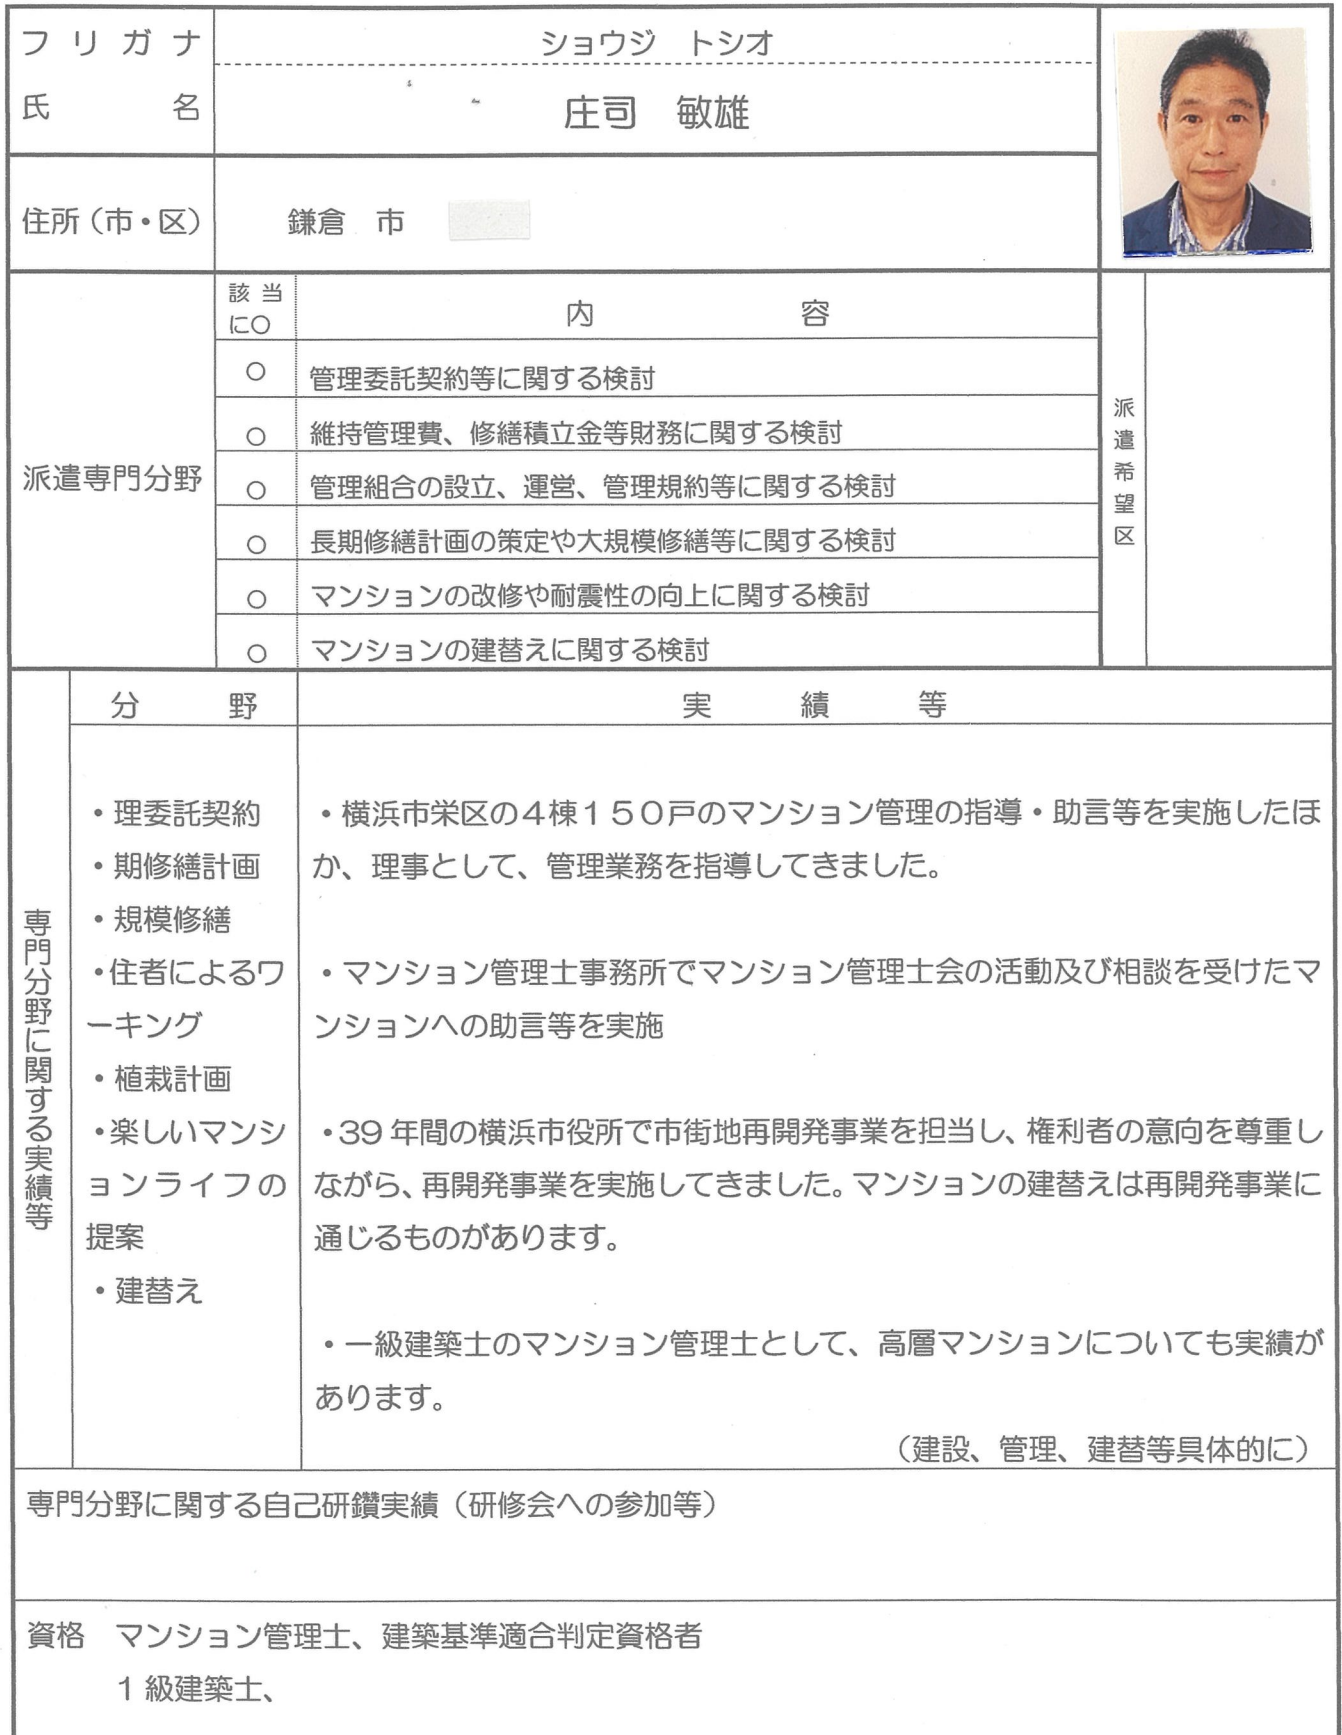 フリガナ
ショウジ　トシオ
氏　名
庄司　敏雄
住所（市・区）
鎌倉　市
派遣専門分野
該当に〇
内　容
〇 管理委託契約等に関する検討
〇 維持管理費、修繕積立金等財務に関する検討
〇 管理組合の設立、運営、管理規約等に関する検討
〇 長期修繕計画の策定や大規模修繕等に関する検討
〇 マンションの改修や耐震性の向上に関する検討
〇 マンションの建替えに関する検討
派遣希望区
専門分野に関する実績等
分　野
・理委託契約
・期修繕計画
・規模修繕
・住者によるワ
ーキング
・植栽計画
・楽しいマンシ
ョンライフの
提案
・建替え
実　績　等
・横浜市栄区の４棟１５０戸のマンション管理の指導・助言等を実施したほ
か、理事として、管理業務を指導してきました。
・マンション管理士事務所でマンション管理士会の活動及び相談を受けたマ
ンションへの助言等を実施
・39 年間の横浜市役所で市街地再開発事業を担当し、権利者の意向を尊重し
ながら、再開発事業を実施してきました。マンションの建替えは再開発事業に
通じるものがあります。
・一級建築士のマンション管理士として、高層マンションについても実績が
あります。
（建設、管理、建替等具体的に）
専門分野に関する自己研鑽実績（研修会への参加等）
資格　マンション管理士、建築基準適合判定資格者
１級建築士、